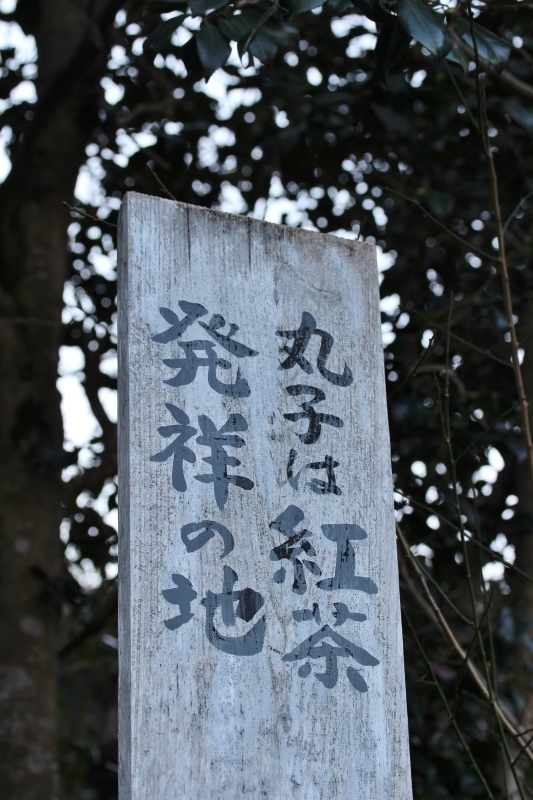 丸子は紅茶
発祥の地